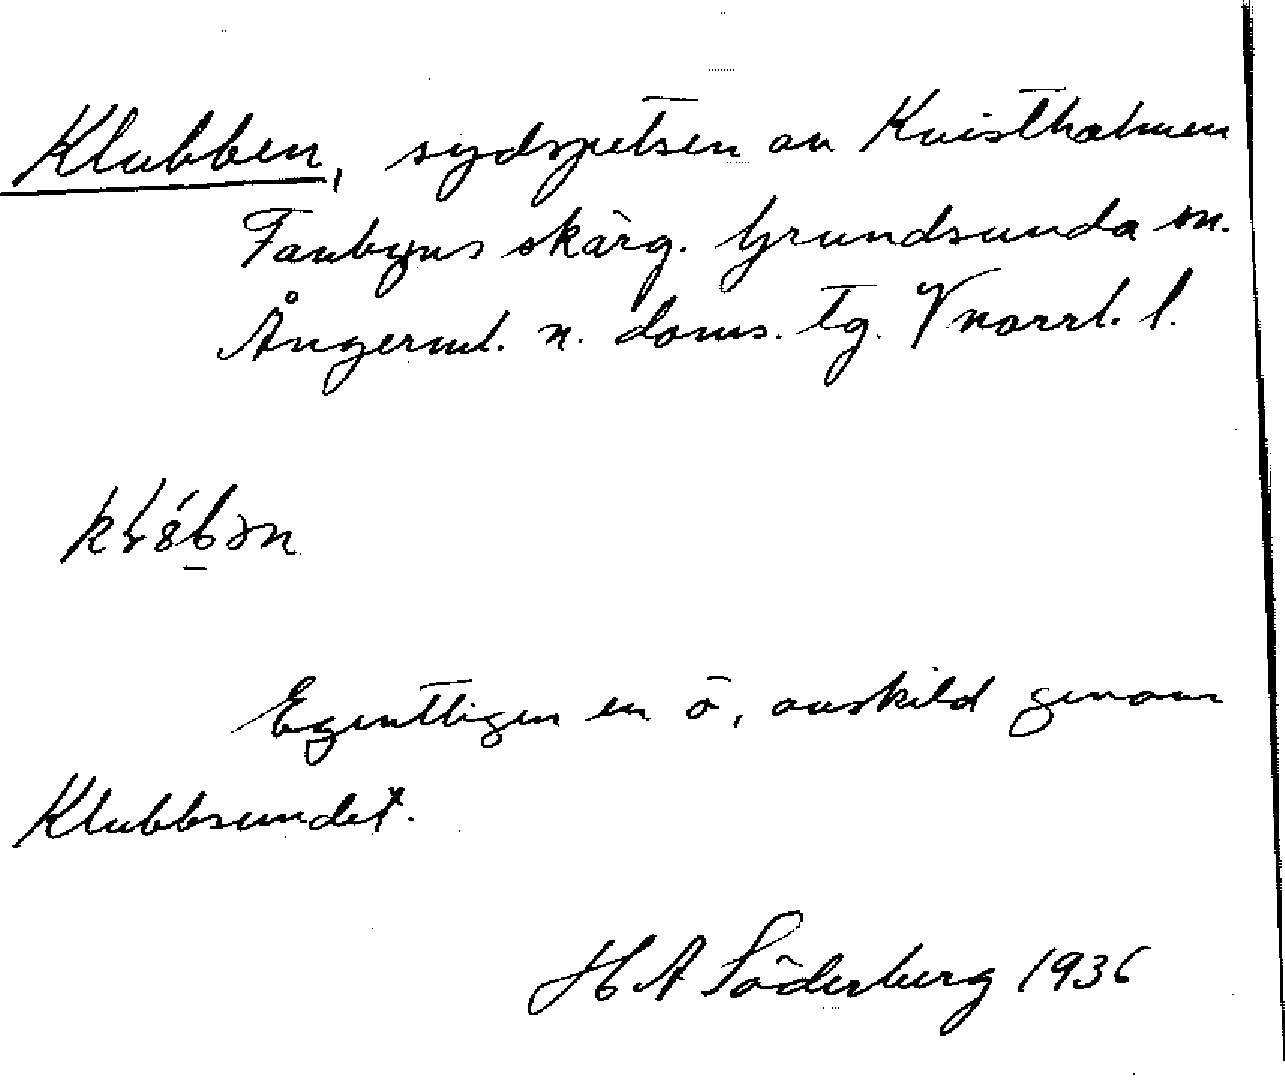 Klubben, sydspetsen av Kvistholmen
Fanbyns skärg. Grundsunda sn.
Ångerml. n. doms. tg. Vnorrl. l.
Egentligen en ö, avskild genom
Klubbsundet.
H A Söderberg 1936